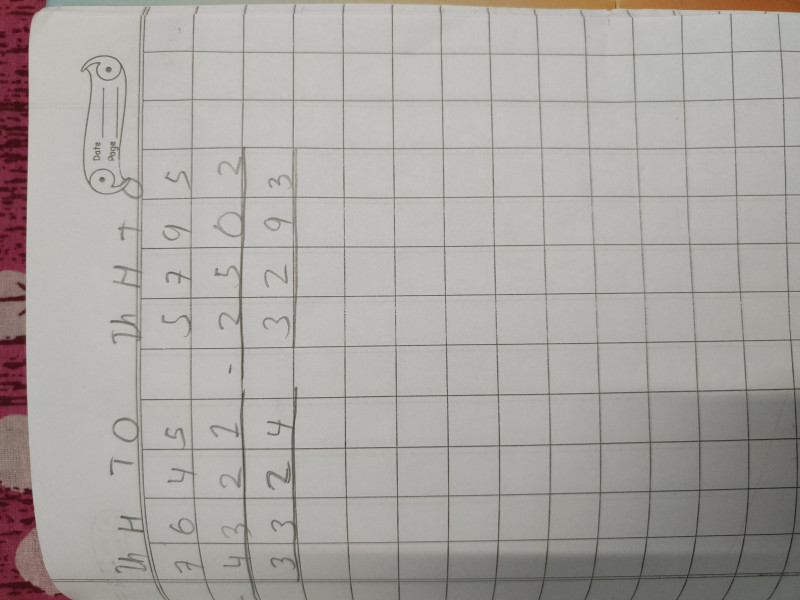 Date
Page
Th H T O Th H T O
7 6 4 5 5 7 9 5
- 4 3 2 1 - 2 5 0 2
3 3 2 4 3 2 9 3